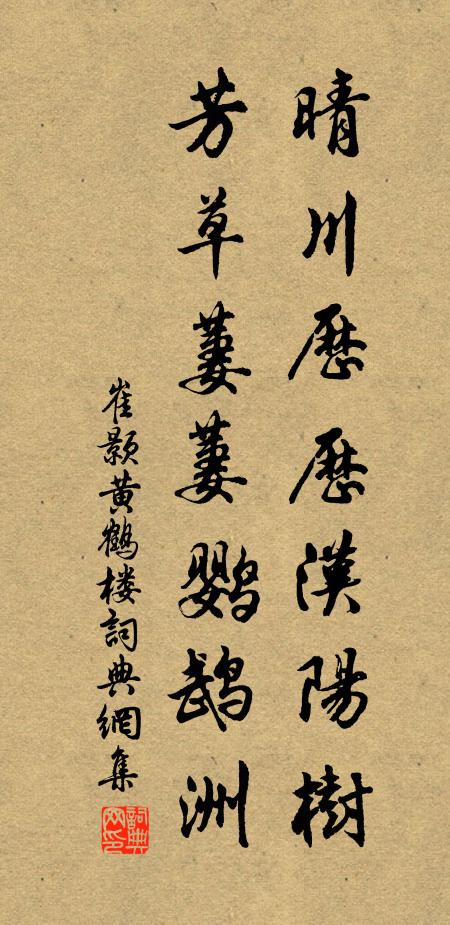 晴川歷歷漢陽樹
芳草萋萋鸚鵡洲
崔顥黃鶴楼詞典網集
詞典网印